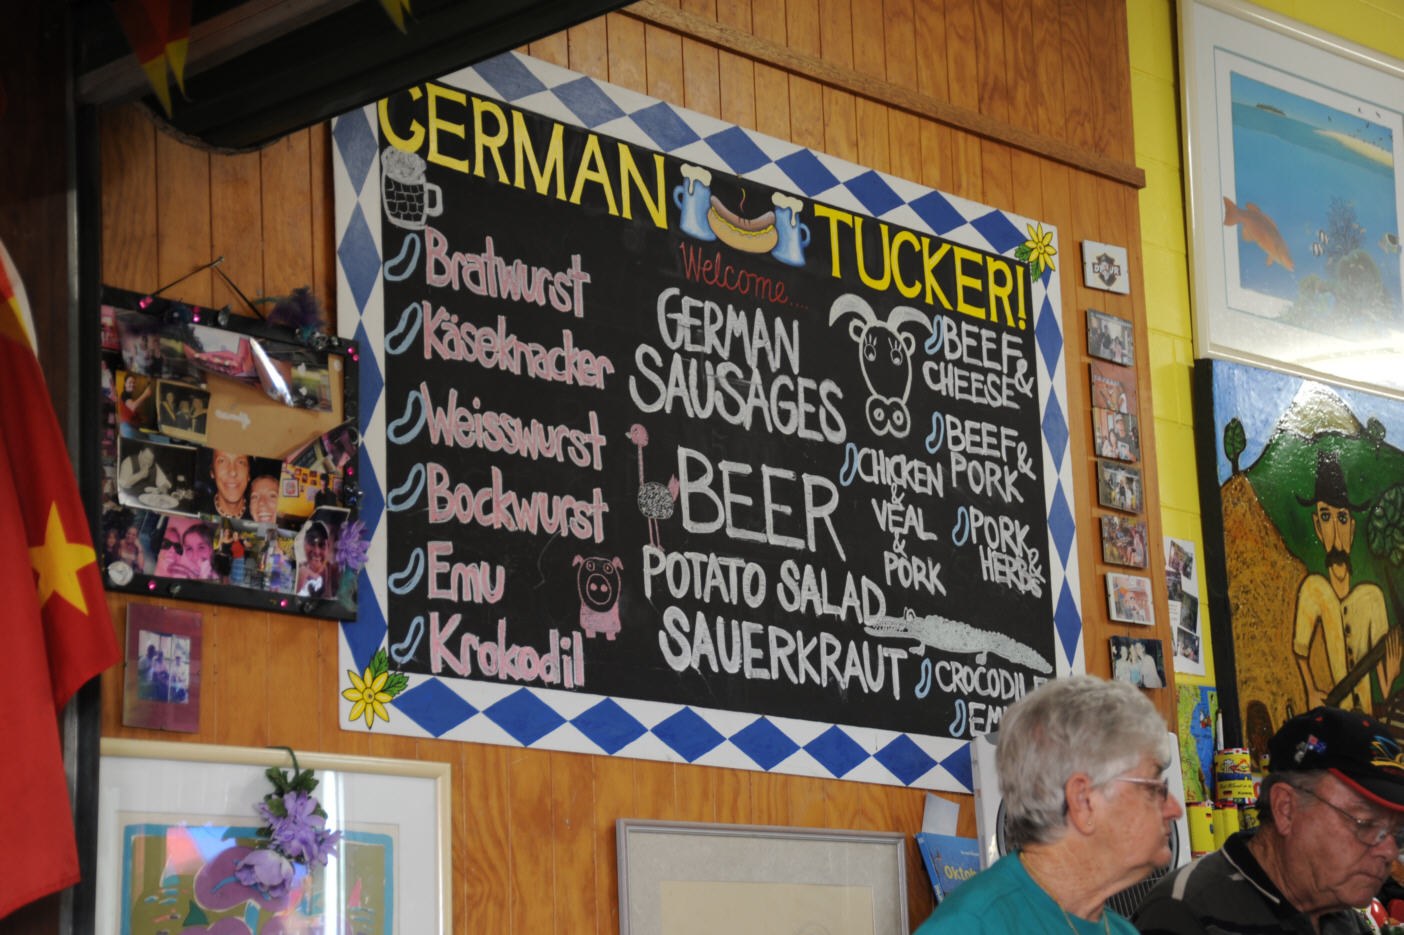 GERMAN TUCKER!
Welcome....
Bratwurst
Käseknacker
Weisswurst
Bockwurst
Emu
Krokodil
GERMAN
SAUSAGES
BEER
POTATO SALAD
SAUERKRAUT
BEEF &
CHEESE
BEEF &
PORK
CHICKEN
&
VEAL
&
PORK
PORK &
HERBS
CROCODILE
EMU
Oktob